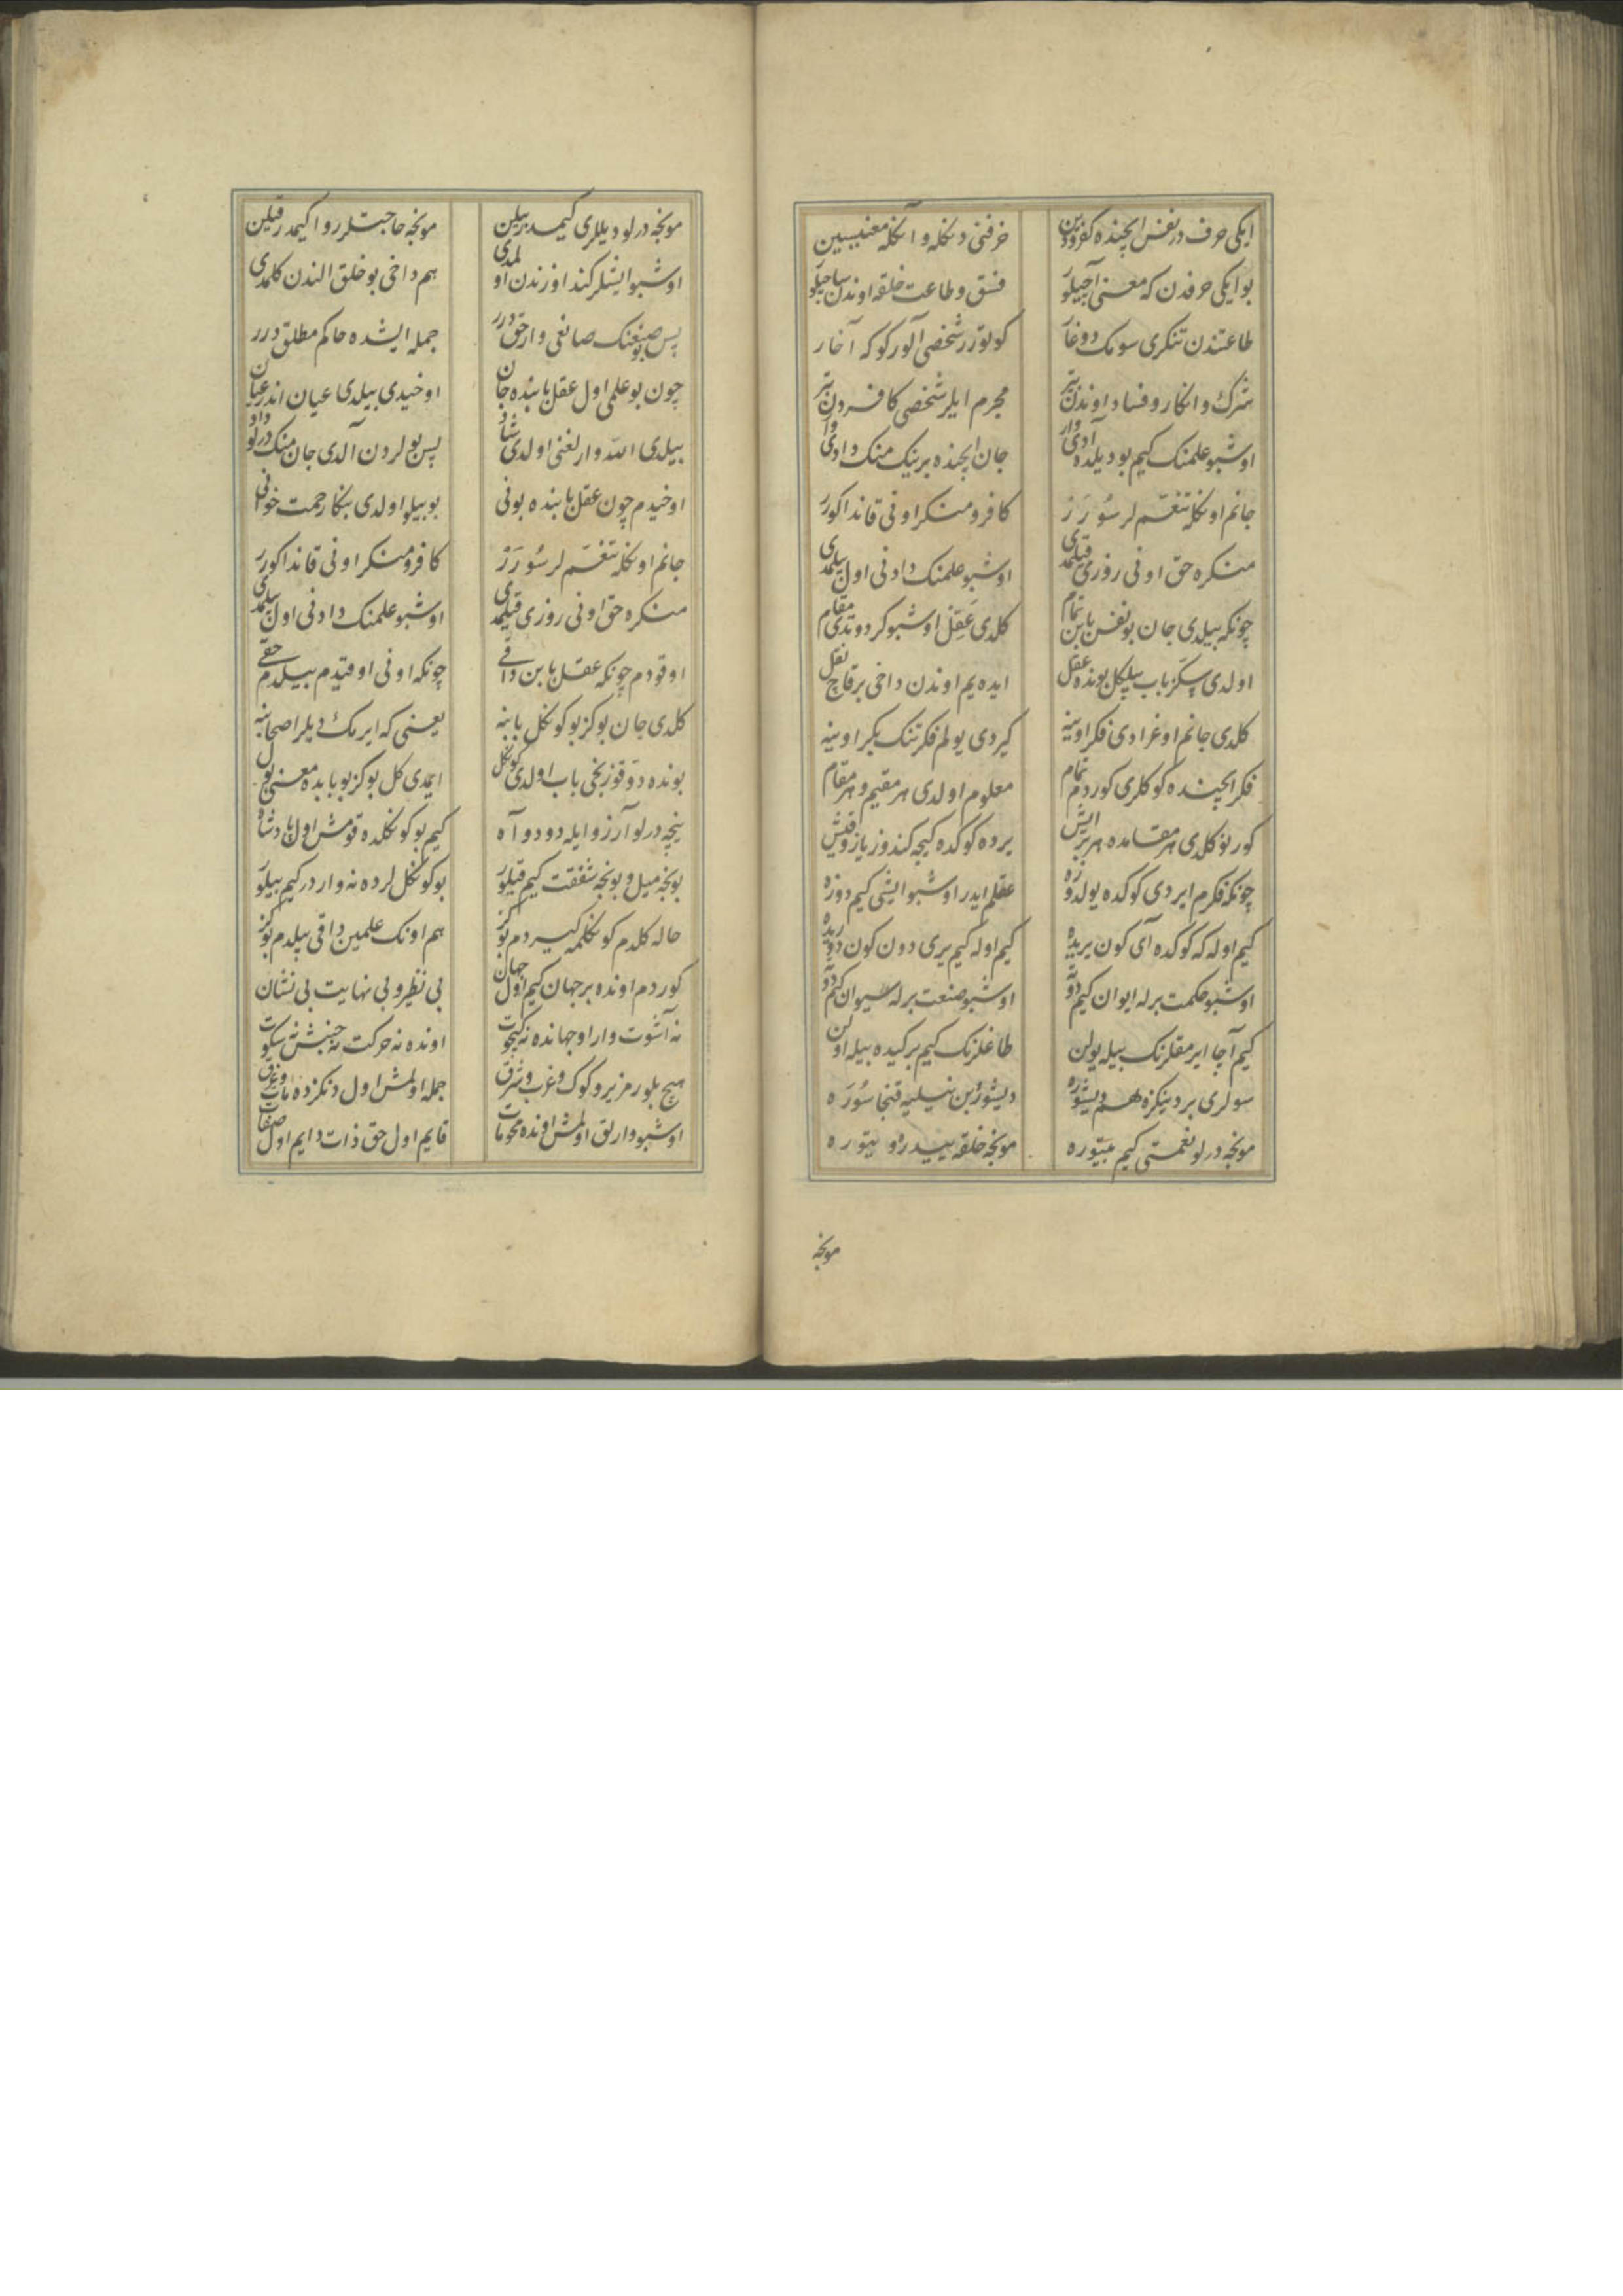 ایکی حرف در نفس ایچنده کفر و دین حرفنی دکله و آنکله معنیسین
بو ایکی حرفدن که معنی آچیلور فسق و طاعت خلقه اوندن ساچیلور
طاعتندن تنکری سومک دوغار کوتورر شخصی آلور کوکه آغار
شرک و انکار و فساد اوندن بتر مجرم ایلر شخصی کافردن بتر
اوشبو علمنک کیم بو دیلده آدی وار جان ایچنده بر نیک منک دادی وار
جانم اونکله تنعّم لر سُورَر کافر و منکر اونی قاندا کورر
منکره حق اونی روزی قیلمدی اوشبو علمنک دادنی اول بیلمدی
چونکه بیلدی جان بو نفس بابن تمام کلدی عقل اوشبو کردو تدی مقام
اولدی سکز باب بیلکل بونده عقل ایده یم اوندن داخی بر قاچ نقل
کلدی جانم اوغرادی فکر اوینه کیردی یولم فکرتنک بکر اوینه
فکر ایچنده کوکلری کوردم تمام معلوم اولدی هر مقیم و هر مقام
کورنو کلدی هر مقامده هر بر ایش یرده کوکده کیجه کندوز یاز و قیش
چونکه فکرم ایردی کوکده یولدوزه عقلم ایدر اوشبو ایشی کیم دوزه
کیم اوله که کوکده آی کون یریده کیم اوله کیم یری دون کون دوریده
اوشبو حکمت برله ایوان کیم دوته اوشبو صنعت برله سیوان کیم دوته
کیم آچا ایرمقلرنک بیله یولن طاغلرنک کیم برکیده بیله اولن
سولری بر دینکزه لهم دیشوره دیشورُبن نیلیه قنجا سُورَه
مونجه درلو نعمتی کیم بیتوره مونجه خلقه ییدرو بیتوره
مونجه
مونجه درلو دیللری کیمدر بیلن مونجه حاجتلر روا کیمدر قیلن
اوشبو ایشلر کند اوزندن اولمدی هم داخی بو خلق الندن کلمدی
پس بو صنعنک صانعی وار حق درر جمله ایشده حاکم مطلق درر
چون بو علمی اول عقل بابنده جان اوخیدی بیلدی عیان اندر عیان
بیلدی الله وارلغنی اولدی شاد پس بولردن آلدی جان منک درلو داد
اوخیدم چون عقل بابنده بونی بو بیلو اولدی بنکا رحمت خونی
جانم اونکله تنعّم لر سُورَر کافر و منکر اونی قاندا کورر
منکره حق اونی روزی قیلمدی اوشبو علمنک دادنی اول بیلمدی
اوقودم چونکه عقل بابن داقی چونکه اونی اوقیدم بیلدم حقی
کلدی جان بو کز بو کونکل بابنه یعنی که ایرمک دیلر اصحابنه
بونده دوقوزنجی باب اولدی کونکل ایمدی کل بو کز بو بابده معنی بول
نیچه درلو آرزو ایله دود و آه کیم بو کونکلده قومش اول پادشاه
بونجه میل و بونجه شفقت کیم قیلور بو کونکللرده نه وار در کیم بیلور
حاله کلدم کونکلمه کیردم بو کز هم اونک علمین داقی بیلدم بو کز
کوردم اونده بر جهان کیم اول جهان بی نظیر و بی نهایت بی نشان
اونده نه حرکت نه جنبش نه سکوت
هیچ بلورمز یر و کوک و غرب و شرق جمله اولمش اول دنکزده مات و غرق
اوشبو وارلق اولمش اونده محو مات قایم اول حق ذات دایم اول صفات